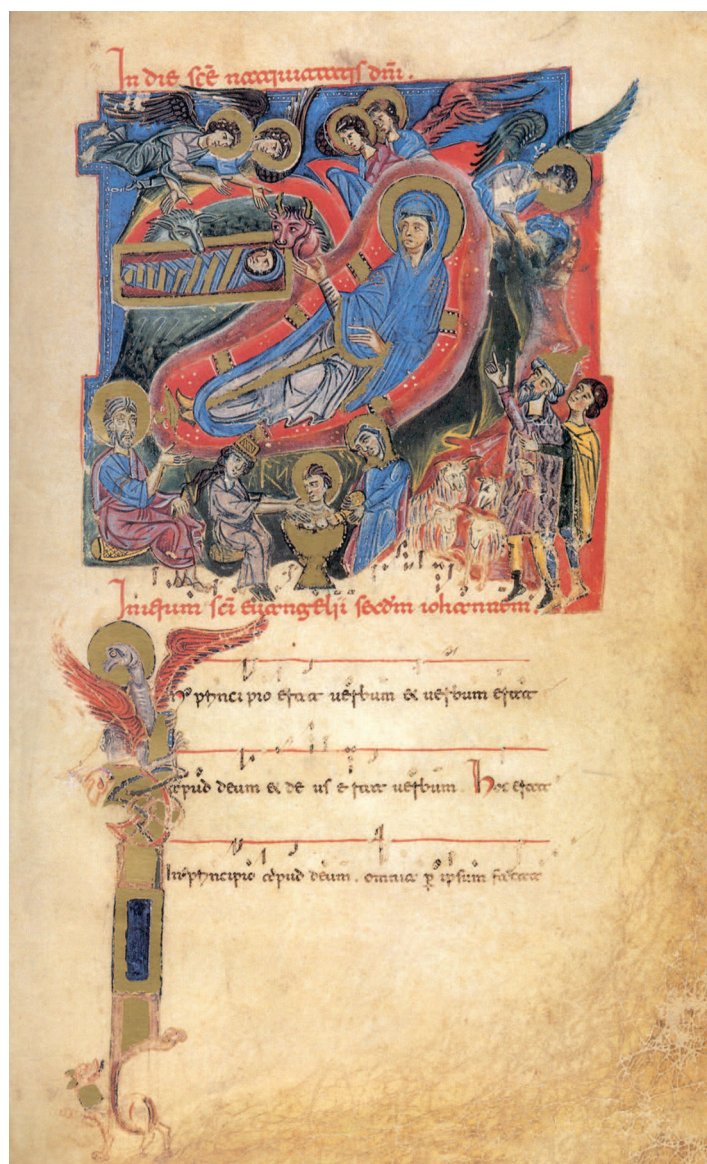 In die scē natiuitatis dñi.
Initium scī euangelii secdm iohannem.
In principio erat uerbum & uerbum erat
apud deum & de us e rat uerbum. Hoc erat
In principio apud deum. omnia p ipsum facta